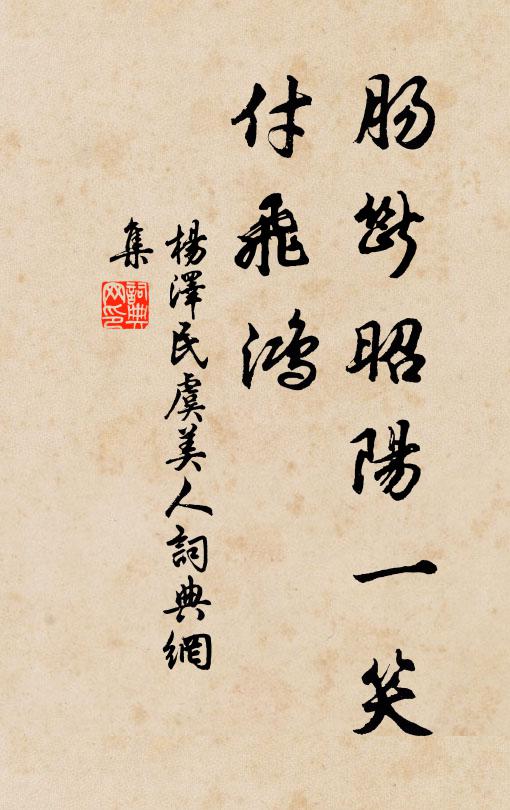 肠斷昭陽一笑
付飛鴻
楊澤民虞美人詞典網
集
詞典网印